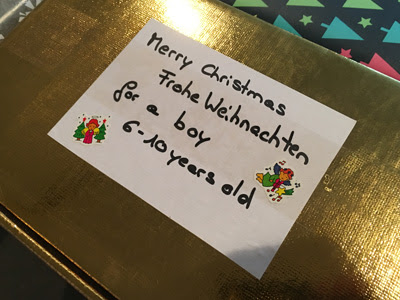 Merry Christmas
Frohe Weihnachten
for a boy
6-10 years old